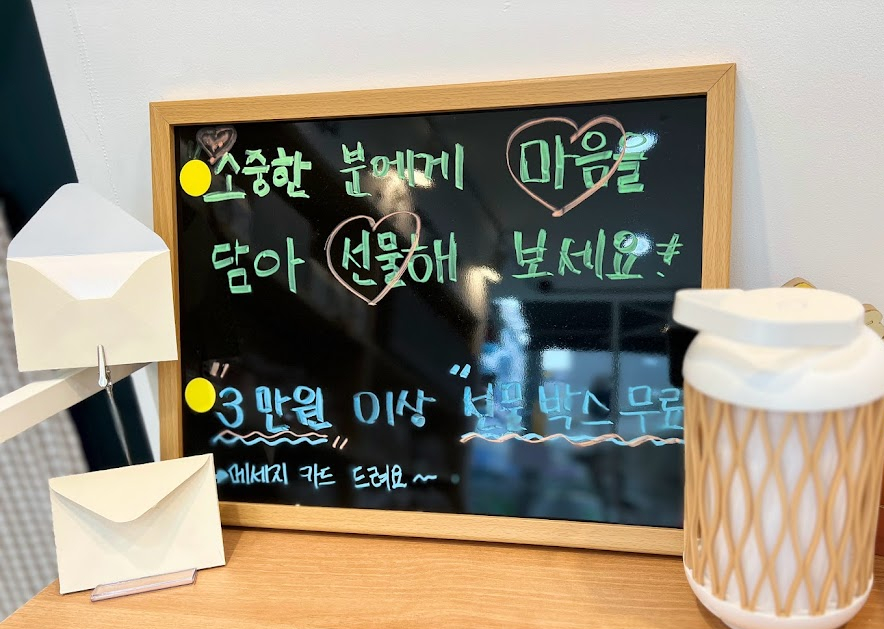 소중한 분에게 마음을
담아 선물해 보세요!
"3만원" 이상 "선물 박스 무료
메세지 카드 드려요~